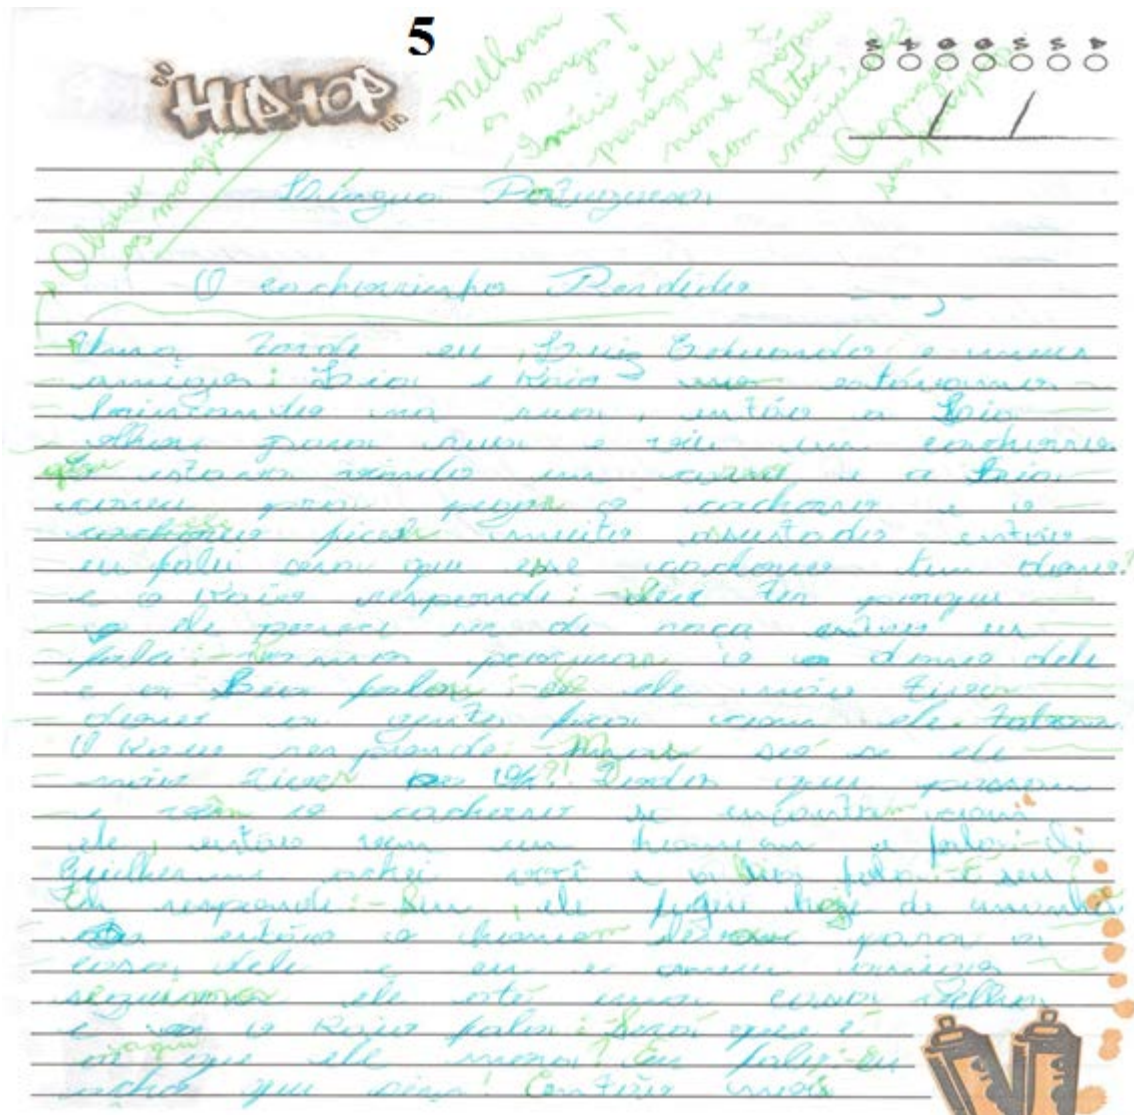 5
HIP HOP
- Melhorar as margens!
- Início de parágrafo e nome próprio com letra maiúscula
- Organizar seus parágrafos
Observe as margens
Língua Portuguesa
O cachorrinho Perdido
Uma tarde eu, Luiz Eduardo e meus
amigos: Bia e Kaio estávamos
brincando na rua, então a Bia
olhou para rua e viu um cachorro
estava vindo um carro e a Bia
correu pra pegar o cachorro e o
cachorro ficou muito assustado então
eu falei será que esse cachorro tem dono?
e o Kaio responde: - deve ter porque
ele parece ser de raça então eu
falei: - vamos procurar o dono dele
e a Bia falou: - Se ele não tiver
dono a gente fica com ele.
O Kaio responde: - Mais só se ele
não tiver ok?! Todos que passam
e vêm o cachorro se encantam com
ele, então vem um homem e fala: - di
Guilherme achei você e a Bia fala: - É seu?
Ele responde: - Sim, ele fugiu hoje de manhã
então o homem para a
casa dele e eu e meu amigos
seguimos ele até uma casa velha
e o Kaio fala: Será que é
aqui que ele mora? Eu falei: - Eu
acho que sim! Então